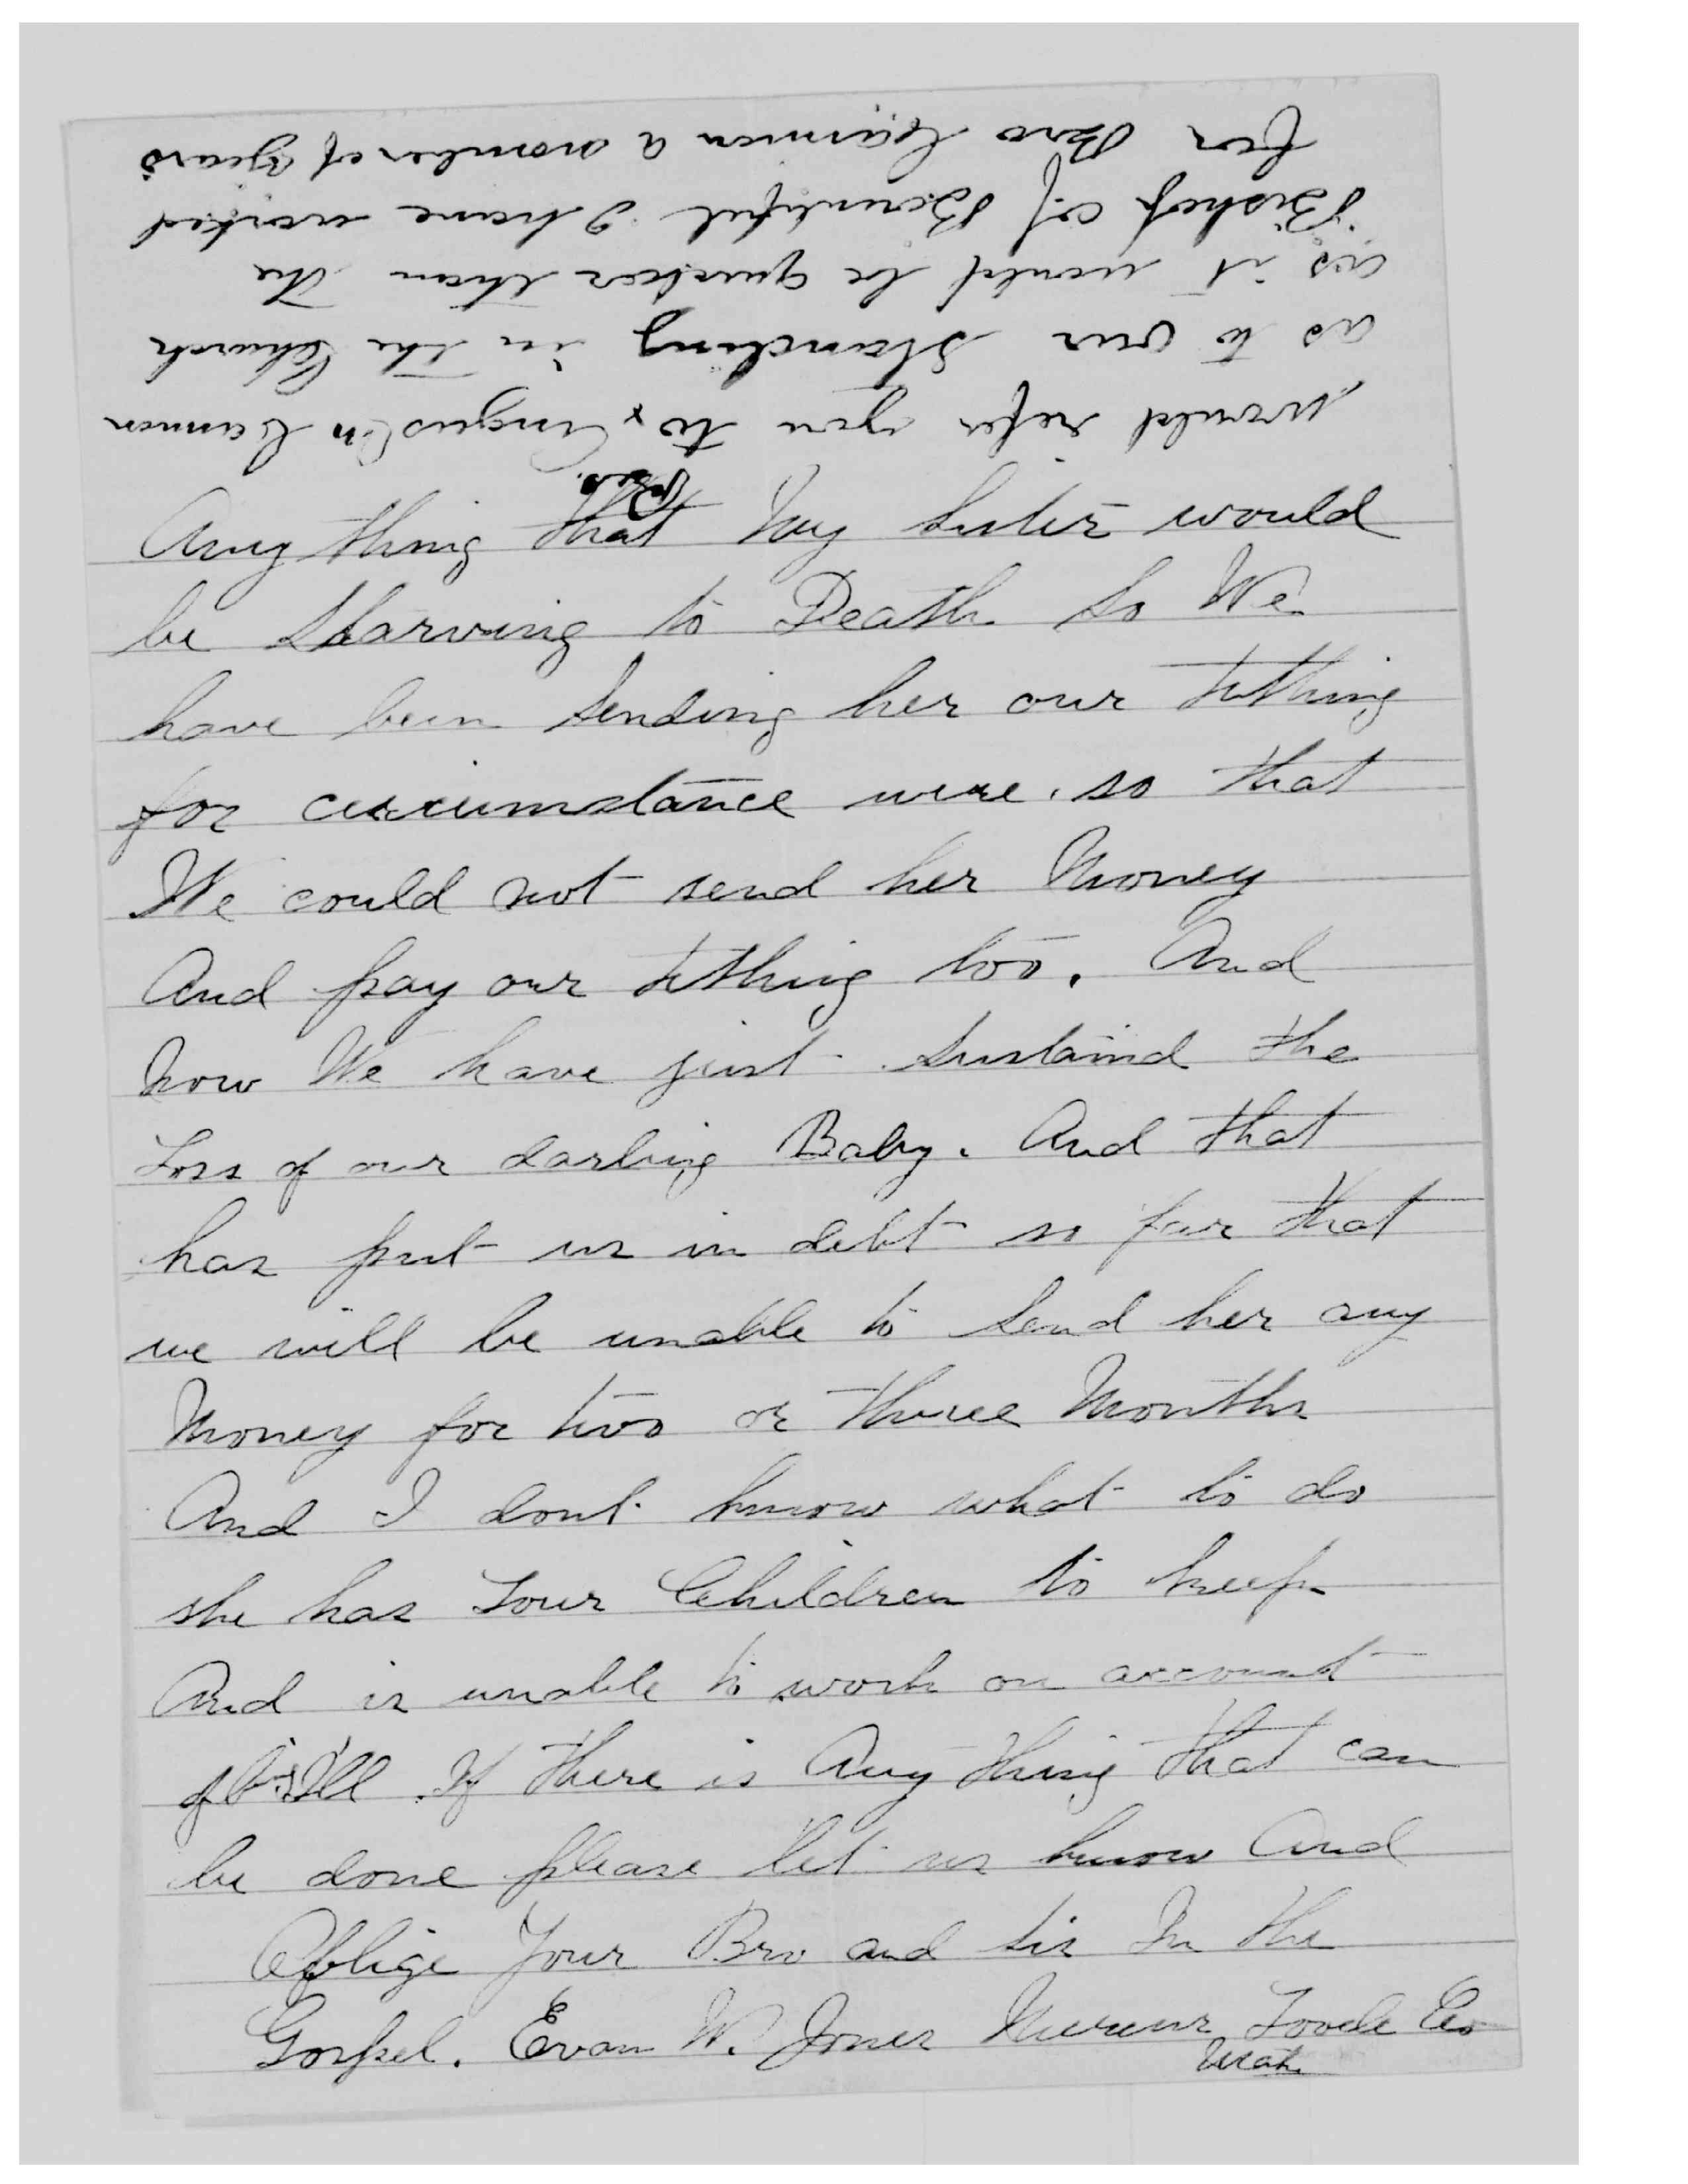 Any thing that My Sister would
be Starving to Death So We
have been Sending her our tithing
for circumstance were so that
We could not send her Money
And pay our tithing too. And
Now We have just Sustaind the
Loss of our darling Baby. And that
has put us in debt so far that
we will be unable to Send her any
Money for two or three Months
And I dont know what to do
she has Four Children to keep
And is unable to work on account
of Ill. If there is Any thing that can
be done please let us know And
Oblige Your Bro and Sis In the
Gospel. Evan W. Jones Mercur Tooele Co
Utah
Pres.
would refer you to Angus M Cannon
as to our Standing in the Church
as it would be quicker than the
Bishop of Bountiful I have worked
for Bro Cannon a number of years